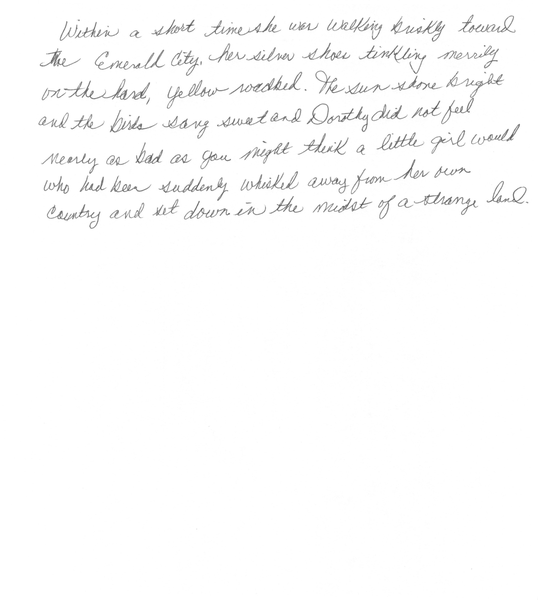 Within a short time she was walking briskly toward
the Emerald City, her silver shoes tinkling merrily
on the hard, yellow roadbed. The sun shone bright
and the birds sang sweet and Dorothy did not feel
nearly as bad as you might think a little girl would
who had been suddenly whisked away from her own
country and set down in the midst of a strange land.